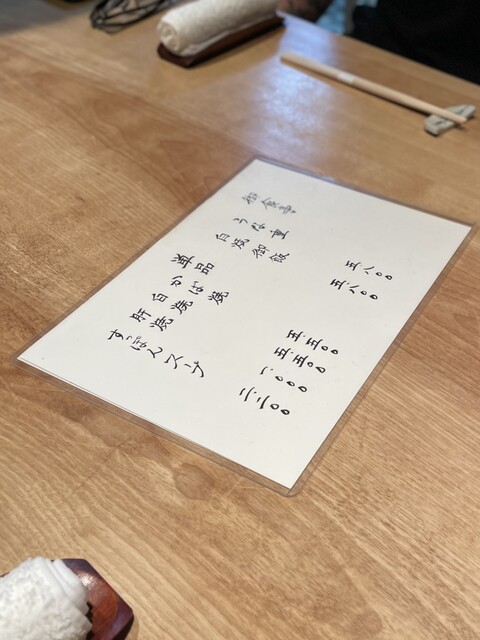 御食事
うな重 五、八〇〇
白焼御飯 五、八〇〇
単品
かば焼 五、五〇〇
白焼 五、五〇〇
肝焼 一、〇〇〇
すっぽんスープ 二、二〇〇